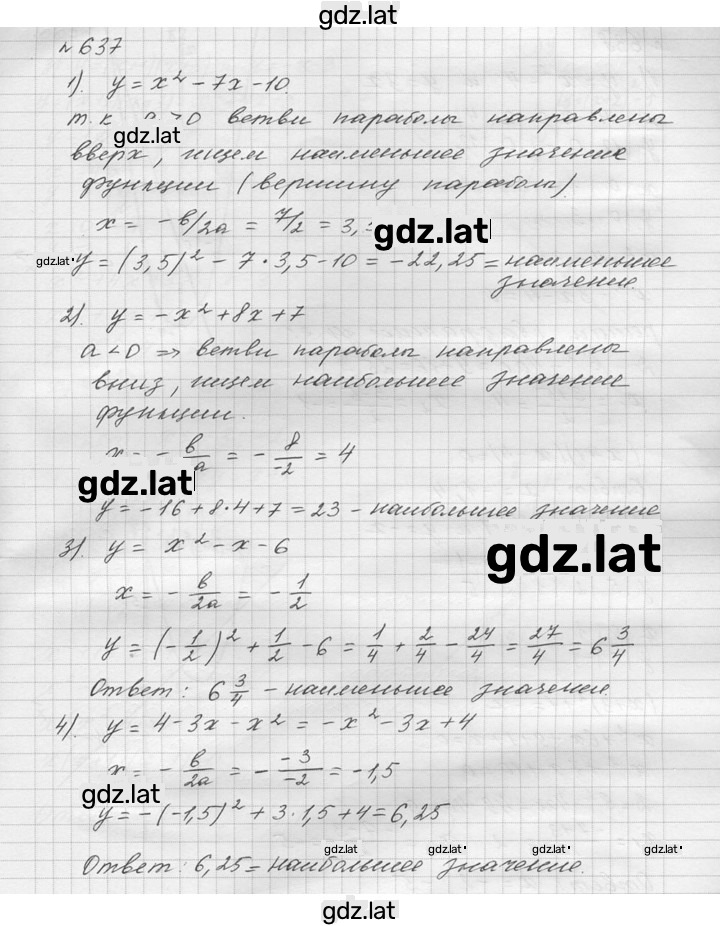 gdz.lat
№ 637
1). y = x² - 7x - 10.
т.к. a > 0 ветви параболы направлены
gdz.lat
вверх, ищем наименьшее значение
функции (вершину параболы).
x = -в/2a = 7/2 = 3,
gdz.lat
gdz.lat
y = (3,5)² - 7·3,5 - 10 = -22,25 = наименьшее
значение.
2). y = -x² + 8x + 7
a < 0 => ветви параболы направлены
вниз, ищем наибольшее значение
функции.
x = - в/a = - 8/-2 = 4
gdz.lat
y = -16 + 8·4 + 7 = 23 - наибольшее значение
3). y = x² - x - 6
gdz.lat
x = - в/2a = - 1/2
y = (-1/2)² + 1/2 - 6 = 1/4 + 2/4 - 24/4 = 27/4 = 6 3/4
Ответ: 6 3/4 - наименьшее значение.
4). y = 4 - 3x - x² = -x² - 3x + 4
x = - в/2a = - -3/-2 = -1,5
gdz.lat
y = -(-1,5)² + 3·1,5 + 4 = 6,25
gdz.lat gdz.lat gdz.lat
Ответ: 6,25 = наибольшее значение.
gdz.lat